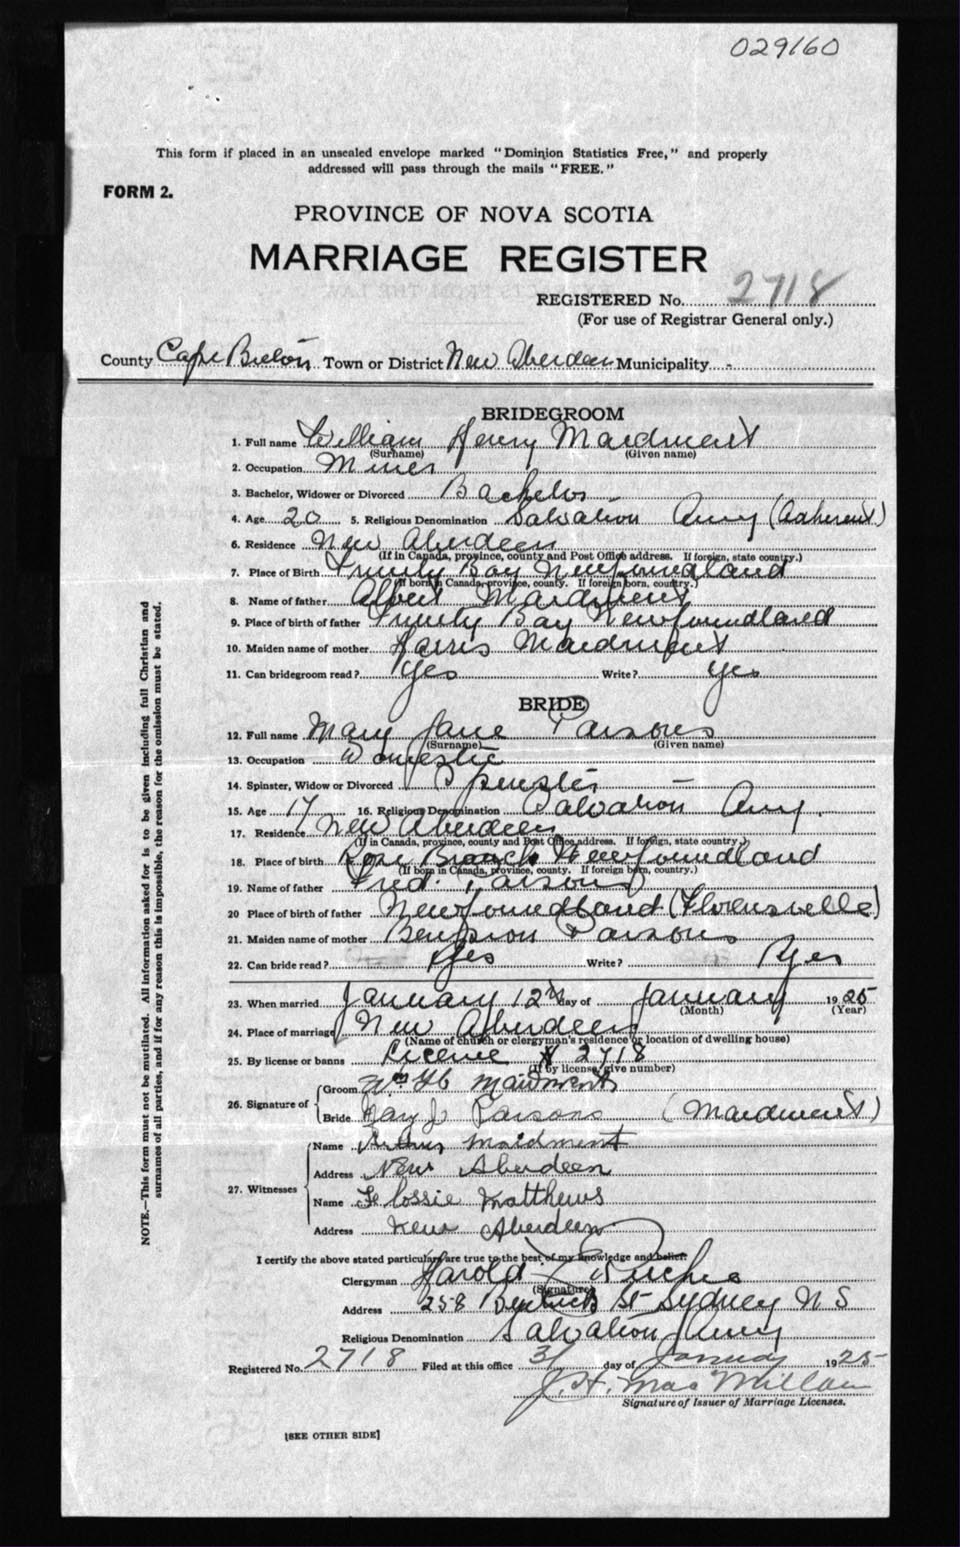 029160
This form if placed in an unsealed envelope marked "Dominion Statistics Free," and properly
addressed will pass through the mails "FREE."
FORM 2.
PROVINCE OF NOVA SCOTIA
MARRIAGE REGISTER
REGISTERED No. 2718
(For use of Registrar General only.)
County Cape Breton Town or District New Aberdeen Municipality -
BRIDEGROOM
1. Full name William Henry Maidment
(Surname) (Given name)
2. Occupation Miner
3. Bachelor, Widower or Divorced Bachelor
4. Age 20 5. Religious Denomination Salvation Army (Adherent)
6. Residence New Aberdeen
(If in Canada, province, county and Post Office address. If foreign, state country.)
7. Place of Birth Trinity Bay Newfoundland
(If born in Canada, province, county. If foreign born, country.)
8. Name of father Albert Maidment
9. Place of birth of father Trinity Bay Newfoundland
10. Maiden name of mother Harris Maidment
11. Can bridegroom read? Yes Write? Yes
BRIDE
12. Full name Mary Jane Parsons
(Surname) (Given name)
13. Occupation Domestic
14. Spinster, Widow or Divorced Spinster
15. Age 17 16. Religious Denomination Salvation Army
17. Residence New Aberdeen
(If in Canada, province, county and Post Office address. If foreign, state country.)
18. Place of birth Rose Branch Newfoundland
(If born in Canada, province, county. If foreign born, country.)
19. Name of father Fred. Parsons
20 Place of birth of father Newfoundland
21. Maiden name of mother Parsons
22. Can bride read? Yes Write? Yes
23. When married January 12th day of January 1925
(Month) (Year)
24. Place of marriage New Aberdeen
(Name of church or clergyman's residence or location of dwelling house)
25. By license or banns Licence # 2718
(If by license, give number)
26. Signature of Groom Wm H Maidment
Bride Mary J Parsons (Maidment)
27. Witnesses Name Arthur Maidment
Address New Aberdeen
Name Flossie Matthews
Address New Aberdeen
I certify the above stated particulars are true to the best of my knowledge and belief:
Clergyman Harold
(Signature)
Address 258 St Sydney N S
Religious Denomination Salvation Army
Registered No. 2718 Filed at this office 31 day of January 1925
J. H. MacMillan
Signature of Issuer of Marriage Licenses.
[SEE OTHER SIDE]
NOTE.—This form must not be mutilated. All information asked for is to be given including full Christian and
surnames of all parties, and if for any reason this is impossible, the reason for the omission must be stated.